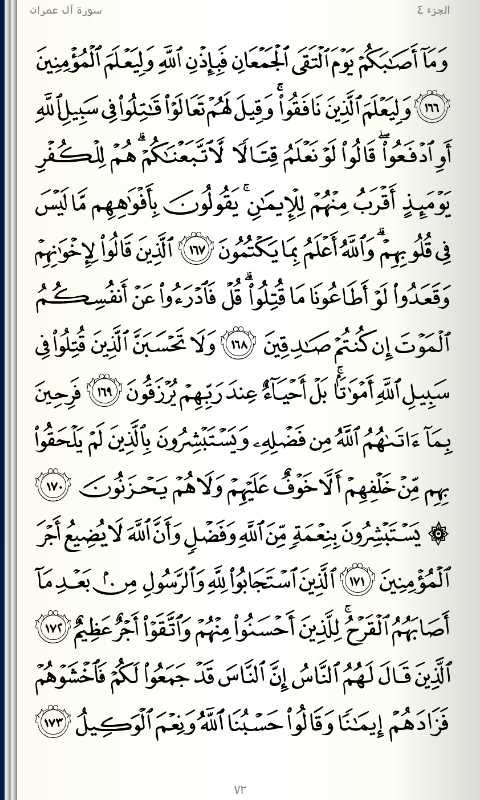 الجزء ٤ سورة آل عمران
وَمَآ أَصَٰبَكُمْ يَوْمَ ٱلْتَقَى ٱلْجَمْعَانِ فَبِإِذْنِ ٱللَّهِ وَلِيَعْلَمَ ٱلْمُؤْمِنِينَ
١٦٦ وَلِيَعْلَمَ ٱلَّذِينَ نَافَقُوا۟ ۚ وَقِيلَ لَهُمْ تَعَالَوْا۟ قَٰتِلُوا۟ فِى سَبِيلِ ٱللَّهِ
أَوِ ٱدْفَعُوا۟ ۖ قَالُوا۟ لَوْ نَعْلَمُ قِتَالًا لَّٱتَّبَعْنَٰكُمْ ۗ هُمْ لِلْكُفْرِ
يَوْمَئِذٍ أَقْرَبُ مِنْهُمْ لِلْإِيمَٰنِ ۚ يَقُولُونَ بِأَفْوَٰهِهِم مَّا لَيْسَ
فِى قُلُوبِهِمْ ۗ وَٱللَّهُ أَعْلَمُ بِمَا يَكْتُمُونَ ١٦٧ ٱلَّذِينَ قَالُوا۟ لِإِخْوَٰنِهِمْ
وَقَعَدُوا۟ لَوْ أَطَاعُونَا مَا قُتِلُوا۟ ۗ قُلْ فَٱدْرَءُوا۟ عَنْ أَنفُسِكُمُ
ٱلْمَوْتَ إِن كُنتُمْ صَٰدِقِينَ ١٦٨ وَلَا تَحْسَبَنَّ ٱلَّذِينَ قُتِلُوا۟ فِى
سَبِيلِ ٱللَّهِ أَمْوَٰتًۢا ۚ بَلْ أَحْيَآءٌ عِندَ رَبِّهِمْ يُرْزَقُونَ ١٦٩ فَرِحِينَ
بِمَآ ءَاتَىٰهُمُ ٱللَّهُ مِن فَضْلِهِۦ وَيَسْتَبْشِرُونَ بِٱلَّذِينَ لَمْ يَلْحَقُوا۟
بِهِم مِّنْ خَلْفِهِمْ أَلَّا خَوْفٌ عَلَيْهِمْ وَلَا هُمْ يَحْزَنُونَ ١٧٠
۞ يَسْتَبْشِرُونَ بِنِعْمَةٍ مِّنَ ٱللَّهِ وَفَضْلٍ وَأَنَّ ٱللَّهَ لَا يُضِيعُ أَجْرَ
ٱلْمُؤْمِنِينَ ١٧١ ٱلَّذِينَ ٱسْتَجَابُوا۟ لِلَّهِ وَٱلرَّسُولِ مِنۢ بَعْدِ مَآ
أَصَابَهُمُ ٱلْقَرْحُ ۚ لِلَّذِينَ أَحْسَنُوا۟ مِنْهُمْ وَٱتَّقَوْا۟ أَجْرٌ عَظِيمٌ ١٧٢
ٱلَّذِينَ قَالَ لَهُمُ ٱلنَّاسُ إِنَّ ٱلنَّاسَ قَدْ جَمَعُوا۟ لَكُمْ فَٱخْشَوْهُمْ
فَزَادَهُمْ إِيمَٰنًا وَقَالُوا۟ حَسْبُنَا ٱللَّهُ وَنِعْمَ ٱلْوَكِيلُ ١٧٣
٧٢